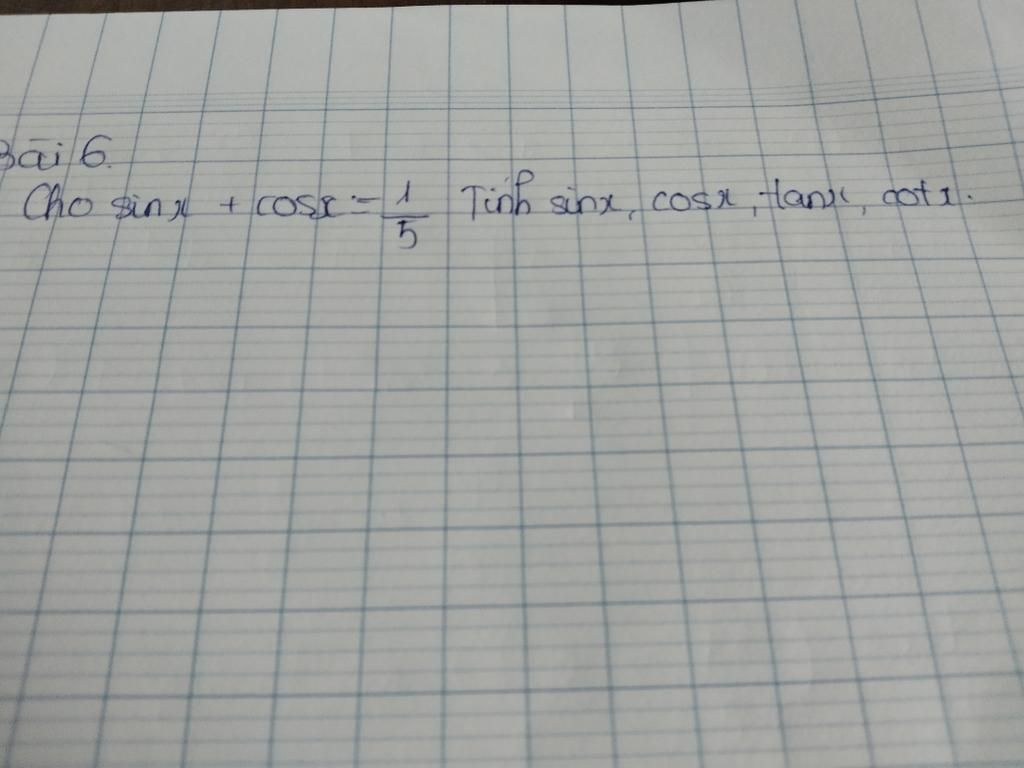 Bài 6.
Cho sinx + cosx = 1/5 Tính sinx, cosx, tanx, cotx.